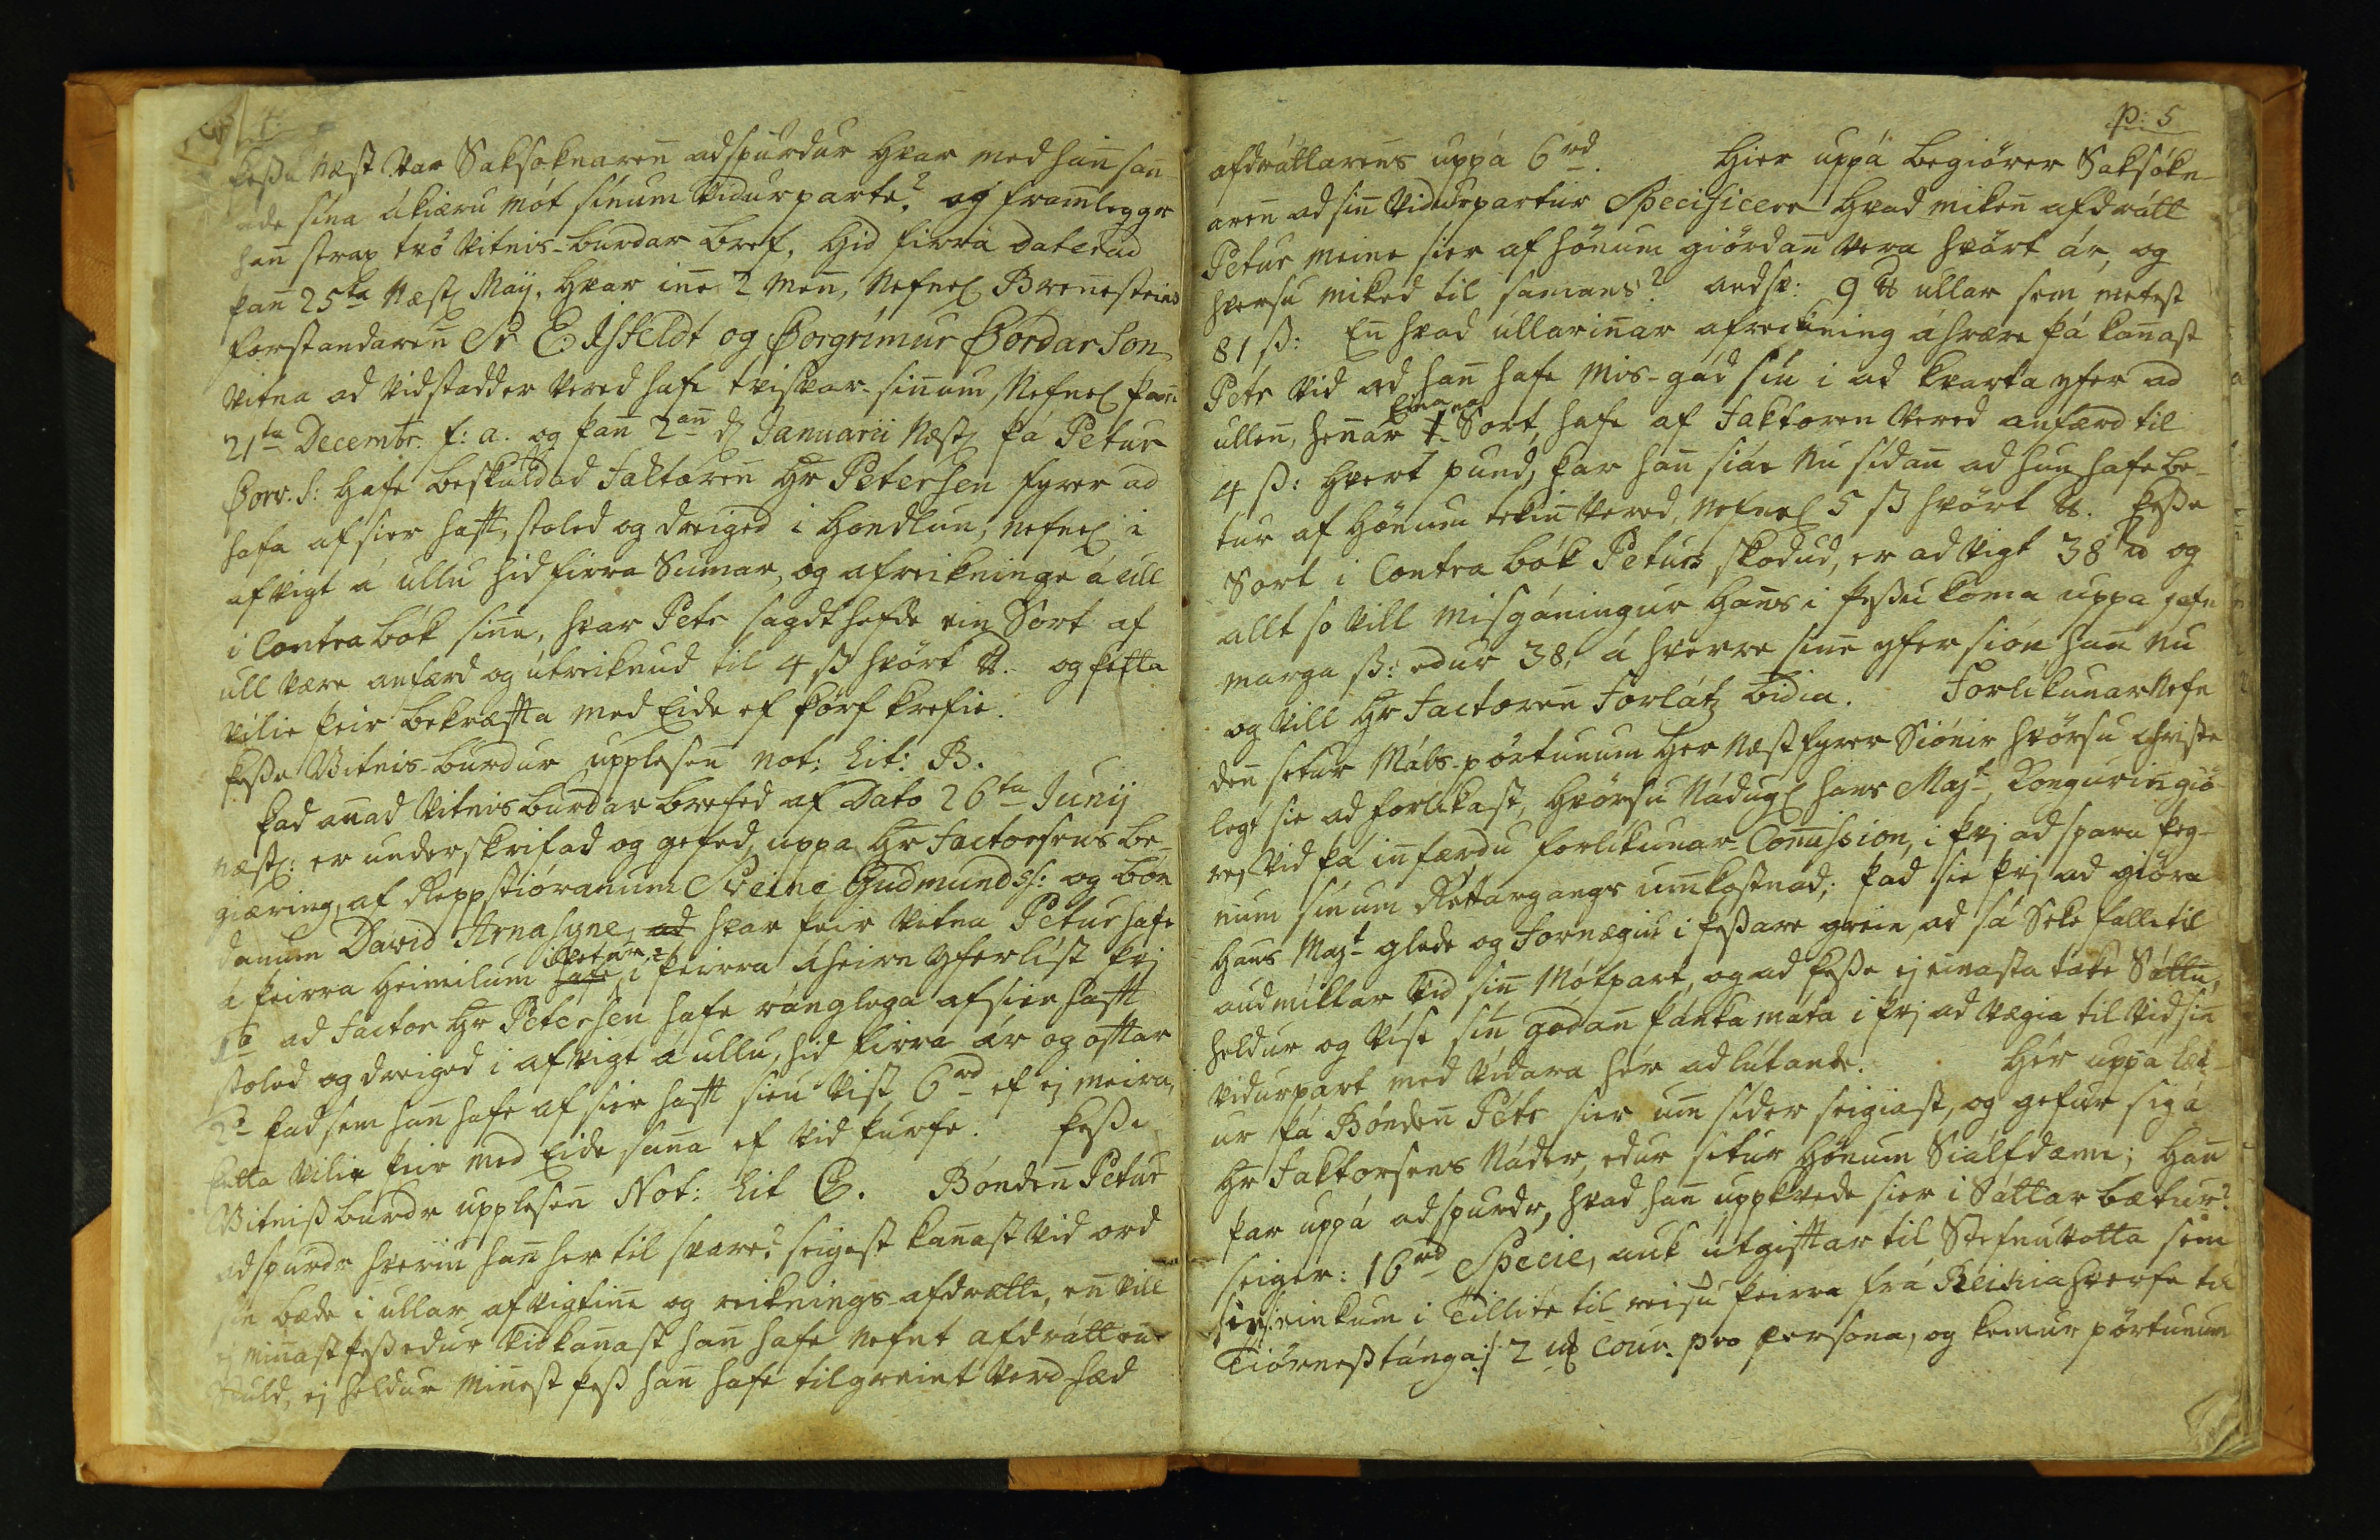 4.
þessu næst var Saksóknaren̄ adspurdur hvar med han̄ san̄-
ade sína ákiæru mót sínum vidurparte? og fram̄leggr
han̄ strax tvö vitnis-burdar bref, hid firra daterad
þan̄ 25ta næstl Maÿ, hvar in̄e 2 men̄, nefnel Bren̄esteins
forstandaren̄ Sr E. Isfeldt og Þorgrímur Þórdar Son
vitna ad vidstadder vered hafe tvisvar-sin̄um, nefnel þan̄
21ta Decembr. f: a. og þan̄ 2an̄ dl Januarii næstl þá Petur
Þorv. S: hafe beskuldad Faktoren̄ Hr Petersen fyrer ad
hafa af sier haft, stoled og dreiged i hondlun, nefnel i
afvigt á ullu hid firra Sumar, og afreikninge á ull
i Contra bók sin̄e, hvar Petr sagdt hefde ein Sort af
ull være anfærd og útreiknud til 4 ß hvört ℔. og þetta
vilie þeir bekræfta med Eide ef þörf krefie.
þesse Vitnis-burdur upplesen̄ not: Lit: B.
Þad an̄ad vitnisburdar brefed af Dato 26ta Junij
næstl: er underskrifad og gefed, uppa Hr Factorsens be-
giæring, af Reppstióranum Sveine Gudmundss: og bón
danum David Arnasyne, ad hvar þeir vitna Petur hafe
á þeirra heimilum hafe Petur i þeirra áheirn yferlíst þvi
1o ad Factor Hr Petersen hafe ránglega af sier haft
stoled og dreiged i afvigt á ullu, hid firra ár og oftar
2o þad sem han̄ hafe af sier haft sieu víst 6 rd ef ej meira,
þetta vilie þeir med Eide san̄a ef vid þurfe. Þesse
Vitniß burdr upplesen̄ Not: Lit C. Bónden̄ Petur
adspurdr hveriu han̄ her til svare? seigest kan̄ast vid ord
sín bæde i ullar afvigtin̄e og reiknings-afdrætte, en̄ vill
ej min̄ast þeß edur vidkan̄ast han̄ hafe nefnt afdrátten̄
Stuld, ej heldur min̄est þeß han̄ hafe tilgreint verd-hæd
p: 5
afdráttarens uppá 6 rd. Hier uppá begiörer Saksókn
aren̄ ad sin̄ vidurpartur Specificere hvad miken̄ afdrátt
Petur meine sier af hönum giördan̄ vera hvört ár, og
hversu miked til samans? andsv: 9 ℔ ullar sem metest
81 ß: En̄ hvad ullarin̄ar afreikning áhrære þá kan̄ast
Petr vid ad han̄ hafe mis-gád sín i ad kvarta yfer ad
ullen̄, hen̄ar 1 Sort, hafe af Faktoren vered anfærd til
4 ß: hvert pund, þar han̄ siáe nu sídan̄ ad hun hafe be-
tur af hönum tekin̄ vered, nefnel 5 ß hvört ℔. Þesse
Sort i Contra bók Peturs skodud, er ad vigt 38 ℔ og
allt so vill misgáningur hans i þessu koma uppa jafn
marga ß: edur 38, á hverre sin̄e yfersión han̄ nu
og vill Hr Factoren̄ Forlátz bidia. Forlíkunar Nefn
den̄ setur Máls-pörtunum her næst fyrer Siónir hvörsu christe
legt sie ad forlikast, hvörsu Nádugl hans Majt, Kongurin̄ giö-
rej vid þá in̄færdu forlikunar Com̄ission, i þvi ad spara þeg-
num sínum Rettargangs um̄kostnad, þad sie þvi ad giöra
Hans Majt glede og Fornægiu i þessare grein, ad sá Seke falle til
audmiktar vid sin̄ Mótpart, og ad þesse ej einasta take Sátt,
heldur og víse sín gódan þánka máta i þvi ad vægia til vid sin̄
vidurpart med vídara hér ad lútande. Hér uppá læt-
ur þá Bónden̄ Pétr sier um̄ síder seigiast, og gefur sig á
Hr Faktorsens Náder, edur setur hönum Siálfdæme; Han̄
þar uppá adspurdr, hvad han̄ uppkvede sier i Sáttar bætur?
seiger: 16 rd Specie, auk útgiftar til Stefnuvotta sem
sie einkum i Tillite til reisu þeirra frá Reikiahverfe til
Tiörneßtánga:/ 2 m₰ Cour. pro persona, og kemur pörtunum